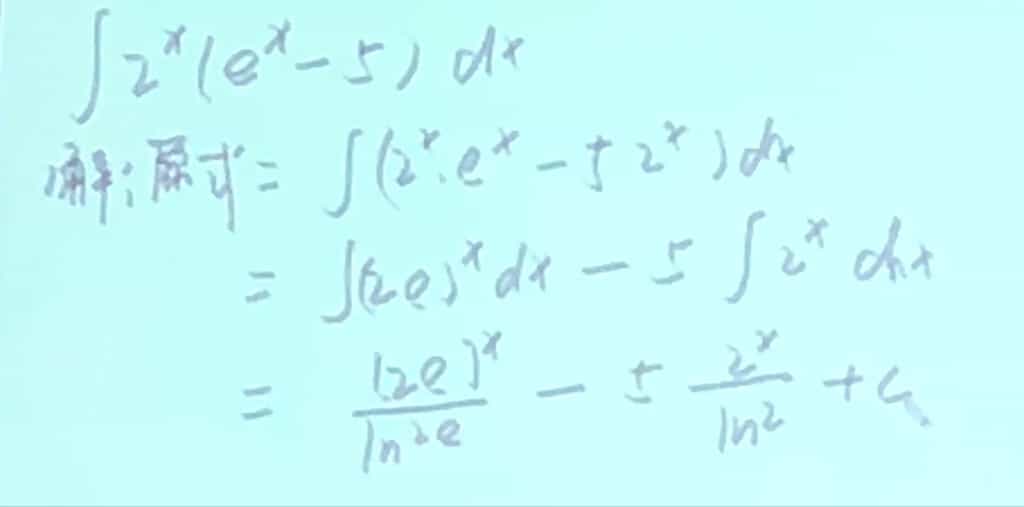 ∫2ˣ(eˣ-5)dx
解:原式=∫(2ˣ·eˣ-5 2ˣ)dx
=∫(2e)ˣdx-5∫2ˣdx
=(2e)ˣ/ln2e-5 2ˣ/ln2+c